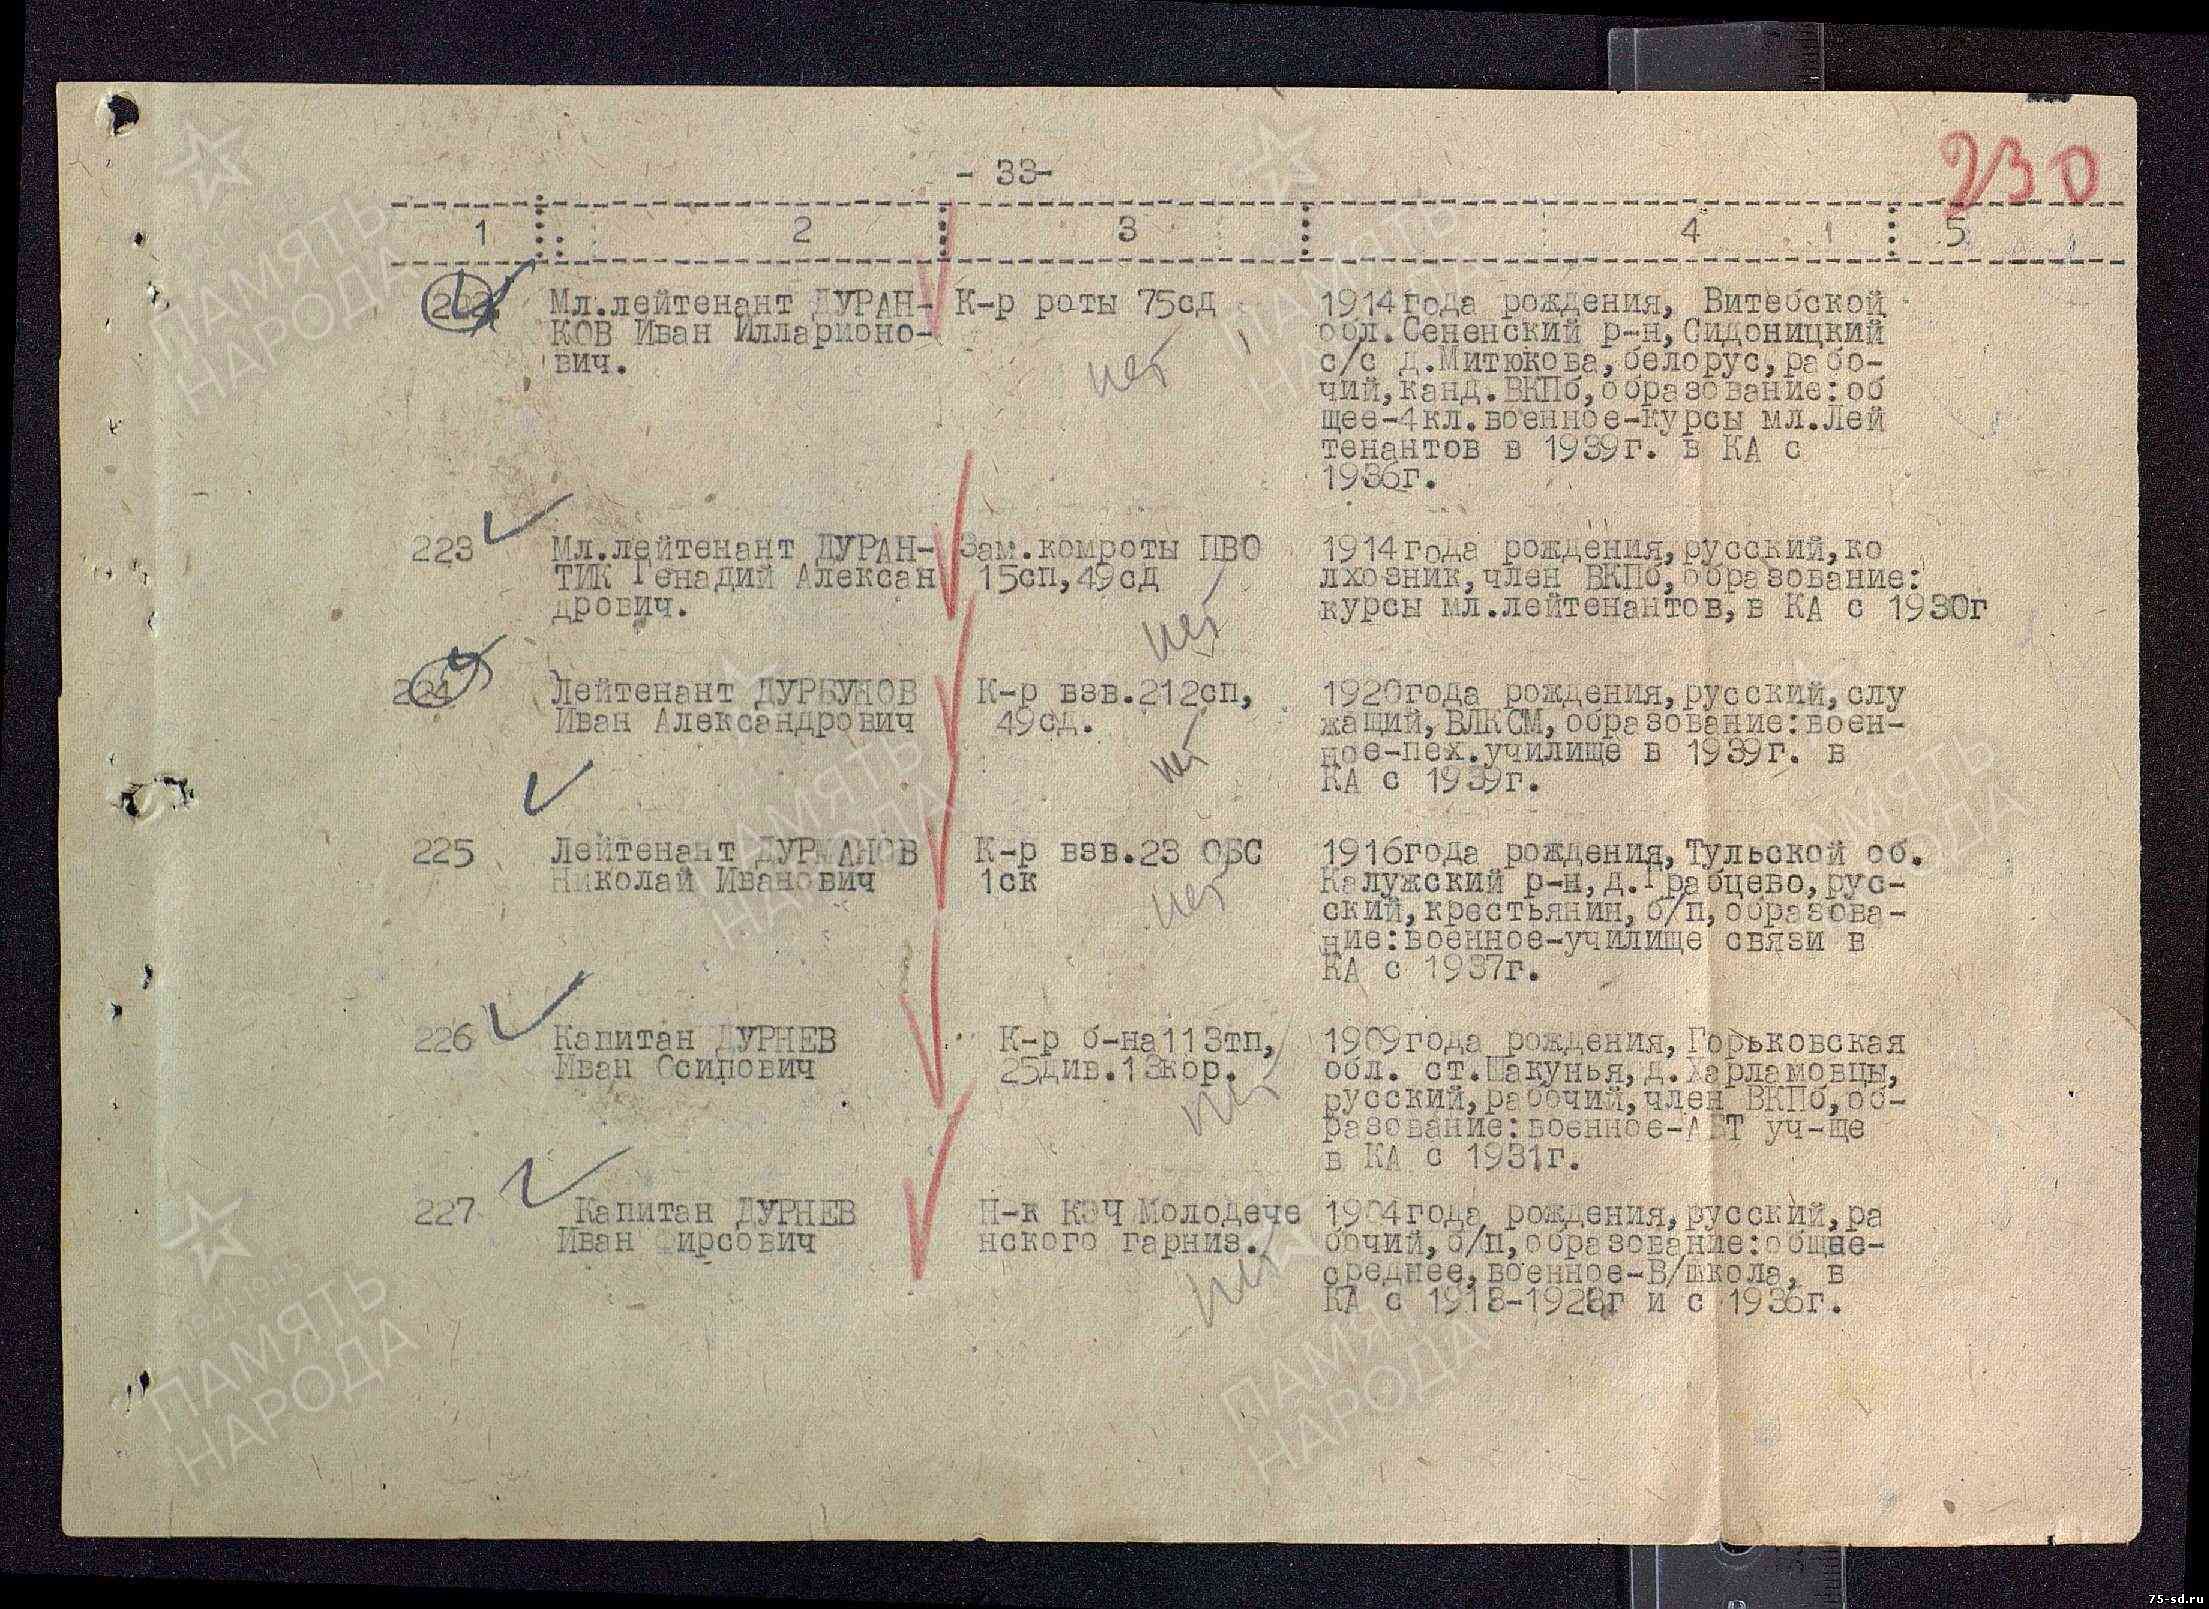 - 33-
230
1 2 3 4 5
222 Мл.лейтенант ДУРАН-
КОВ Иван Илларионо-
вич.
К-р роты 75сд
нет
1914года рождения, Витебской
обл.Сененский р-н,Сидоницкий
с/с д.Митюкова,белорус,рабо-
чий,канд.ВКПб,образование:об
щее-4кл.военное-курсы мл.Лей
тенантов в 1939г. в КА с
1936г.
223 Мл.лейтенант ДУРАН-
ТИК Генадий Алексан
дрович.
Зам.комроты ПВО
15сп,49сд
нет
1914года рождения,русский,ко
лхозник,член ВКПб,образование:
курсы мл.лейтенантов,в КА с 1930г
224 Лейтенант ДУРБУНОВ
Иван Александрович
К-р взв.212сп,
49сд.
нет
1920года рождения,русский,слу
жащий,ВЛКСМ,образование:воен-
ное-пех.училище в 1939г. в
КА с 1939г.
225 Лейтенант ДУРМАНОВ
Николай Иванович
К-р взв.23 ОБС
1ск
нет
1916года рождения,Тульской об.
Калужский р-н,д.Грабцево,рус-
ский,крестьянин,б/п,образова-
ние:военное-училище связи в
КА с 1937г.
226 Капитан ДУРНЕВ
Иван Осипович
К-р б-на113тп,
25див.13кор.
нет
1909года рождения,Горьковская
обл. ст.Шакунья,д.Харламовцы,
русский,рабочий,член ВКПб,об-
разование:военное-АБТ уч-ще
в КА с 1931г.
227 Капитан ДУРНЕВ
Иван Фирсович
Н-к КЭЧ Молодече
нского гарниз.
нет
1904года рождения,русский,ра
бочий,б/п,образование:общее-
среднее,военное-В/школа, в
КА с 1918-1928г и с 1936г.
ПАМЯТЬ
НАРОДА
ПАМЯТЬ
НАРОДА
ПАМЯТЬ
НАРОДА
ПАМЯТЬ
НАРОДА
ПАМЯТЬ
НАРОДА
ПАМЯТЬ
НАРОДА
75-sd.ru